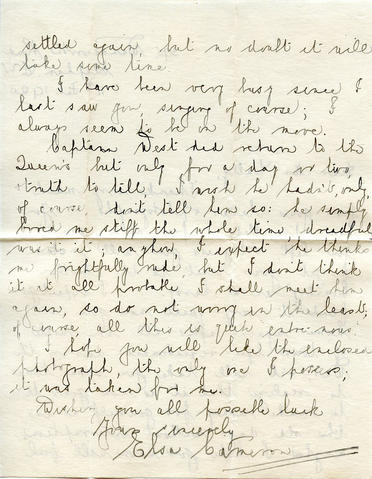 settled again, but no doubt it will
take some time
I have been very busy since I
last saw you singing of course; I
always seem to be on the move.
Captain West did return to the
Queens but only for a day or two
truth to tell I wish he hadn't, only,
of course don't tell him so: he simply
bored me stiff the whole time, dreadful
wasn't it; anyhow, I expect he thinks
me frightfully rude, but I don't think
it at all probable I shall meet him
again, so do not worry in the least;
of course all this is quite entre-nous
I hope you will like the enclosed
photograph, the only one I possess;
it was taken for me.
Wishing you all possible luck
Yours sincerely
Elsa Cameron